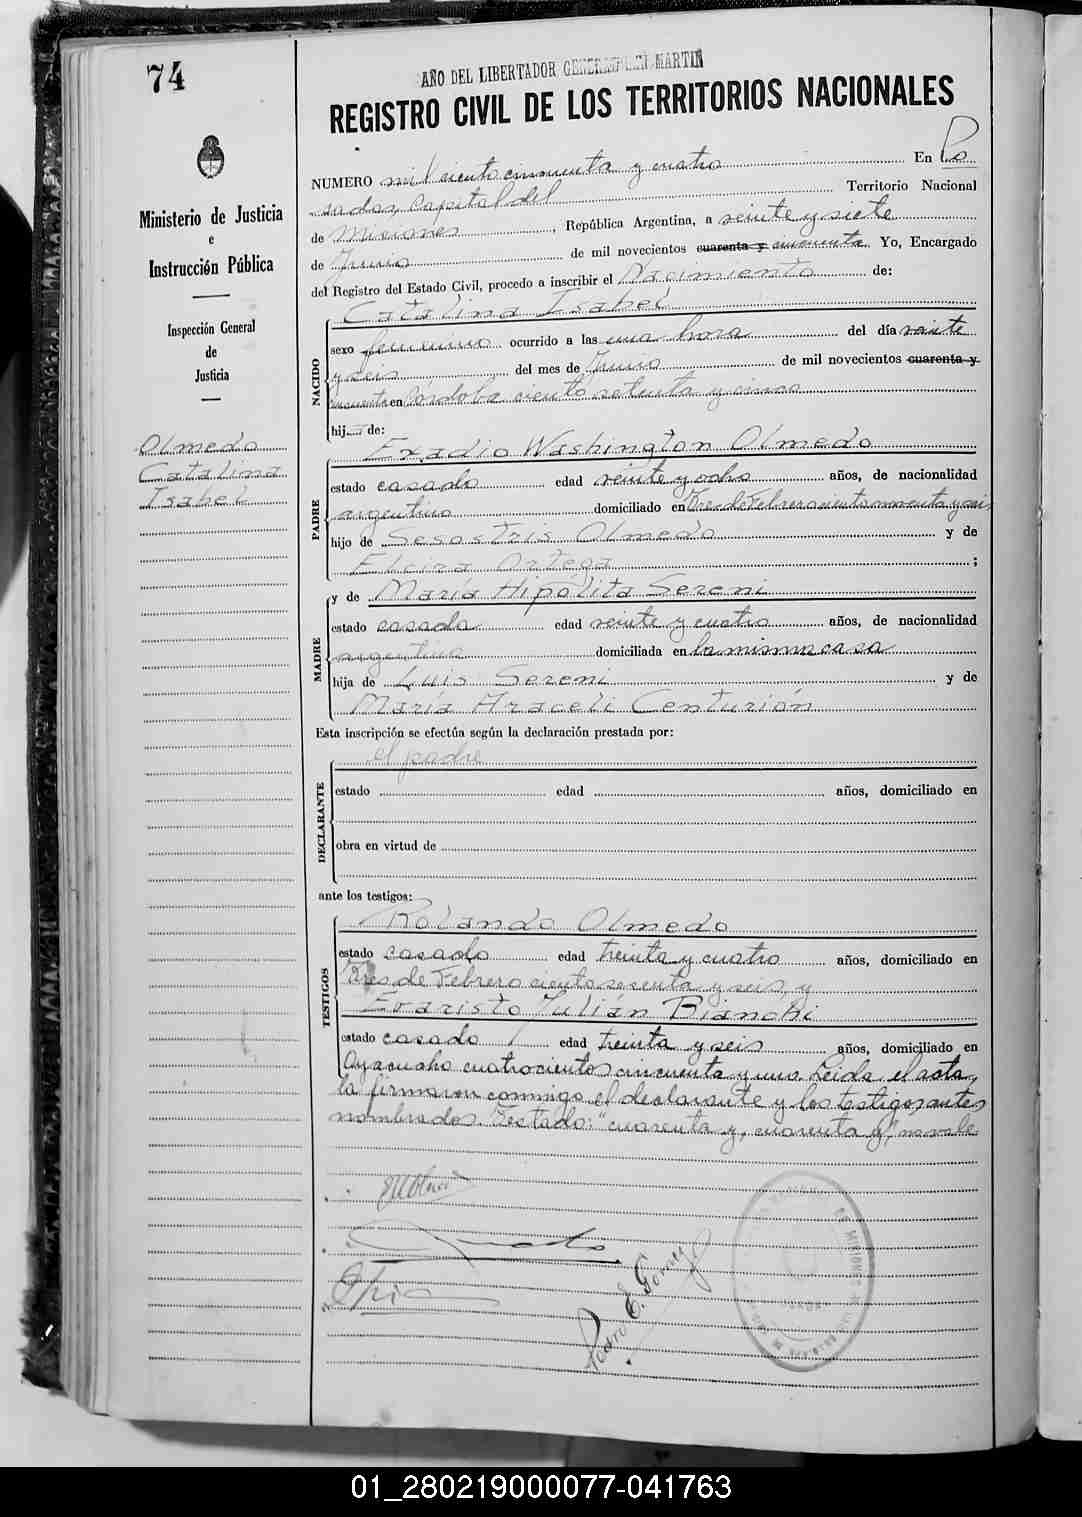 74
AÑO DEL LIBERTADOR GENERAL SAN MARTIN
REGISTRO CIVIL DE LOS TERRITORIOS NACIONALES
Ministerio de Justicia
e
Instrucción Pública
Inspección General
de
Justicia
Olmedo
Catalina
Isabel
NUMERO mil ciento cincuenta y cuatro En Po
sadas, Capital del Territorio Nacional
de Misiones, República Argentina, a veinte y siete
de Junio de mil novecientos cuarenta y cincuenta. Yo, Encargado
del Registro del Estado Civil, procedo a inscribir el Nacimiento de:
NACIDO
Catalina Isabel
sexo femenino ocurrido a las una hora del día veinte
y seis del mes de Junio de mil novecientos cuarenta y
cincuenta en Córdoba ciento setenta y cinco
hija de:
PADRE
Eradio Washington Olmedo
estado casado edad veinte y ocho años, de nacionalidad
argentino domiciliado en Tres de Febrero ciento sesenta y seis
hijo de Sesostris Olmedo y de
Elcira Ortega ;
MADRE
y de María Hipólita Sereni
estado casada edad veinte y cuatro años, de nacionalidad
argentina domiciliada en la misma casa
hija de Luis Sereni y de
María Araceli Centurión
Esta inscripción se efectúa según la declaración prestada por:
DECLARANTE
el padre
estado edad años, domiciliado en
obra en virtud de
ante los testigos:
TESTIGOS
Rolando Olmedo
estado casado edad treinta y cuatro años, domiciliado en
Tres de Febrero ciento sesenta y seis, y
Evaristo Julián Bianchi
estado casado edad treinta y seis años, domiciliado en
Ayacucho cuatrocientos cincuenta y uno. Leida el acta,
la firmaron conmigo el declarante y los testigos antes
nombrados. Testado: "cuarenta y, cuarenta y", no vale.
Pedro E. Gomez
DE MISIONES
01_280219000077-041763